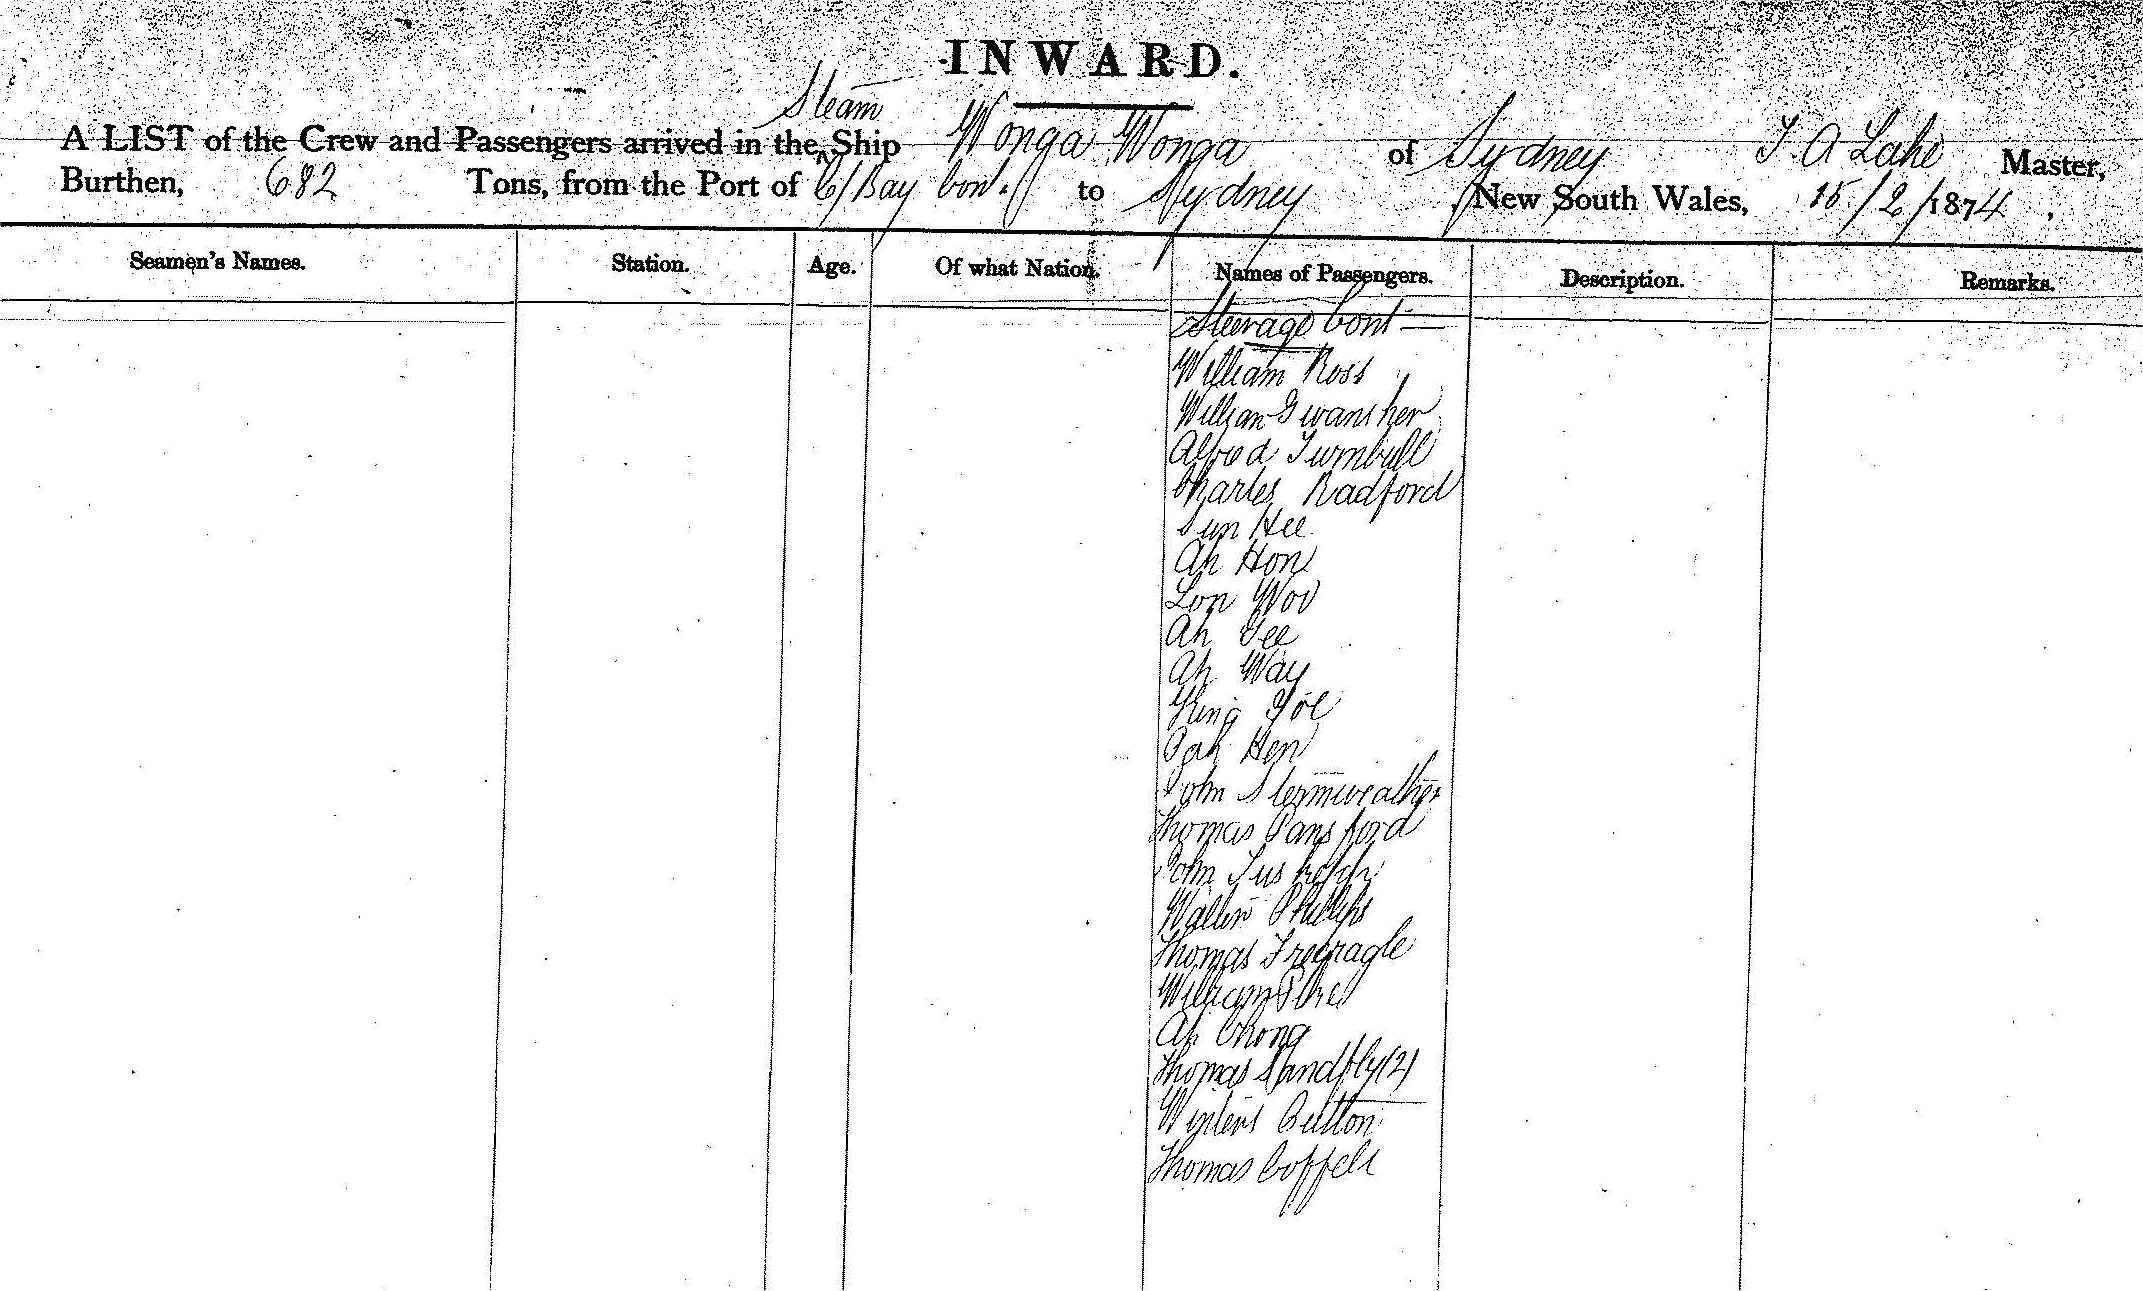 INWARD.
A LIST of the Crew and Passengers arrived in the Steam Ship Wonga Wonga of Sydney T A Lake Master,
Burthen, 682 Tons, from the Port of C/Bay Cont. to Sydney, New South Wales, 15/2/1874.
Seamen's Names. Station. Age. Of what Nation. Names of Passengers. Description. Remarks.
Steerage Cont
William Ross
William
Alfred Turnbull
Charles Radford
Sun Hee
Ah Hon
Lon Wov
Ah Gee
Ah Way
King
Hen
John
Thomas Pansford
John
Walter Phillips
Thomas Freeragle
William
Ah Chong
Thomas Sandfly (2)
Button
Thomas